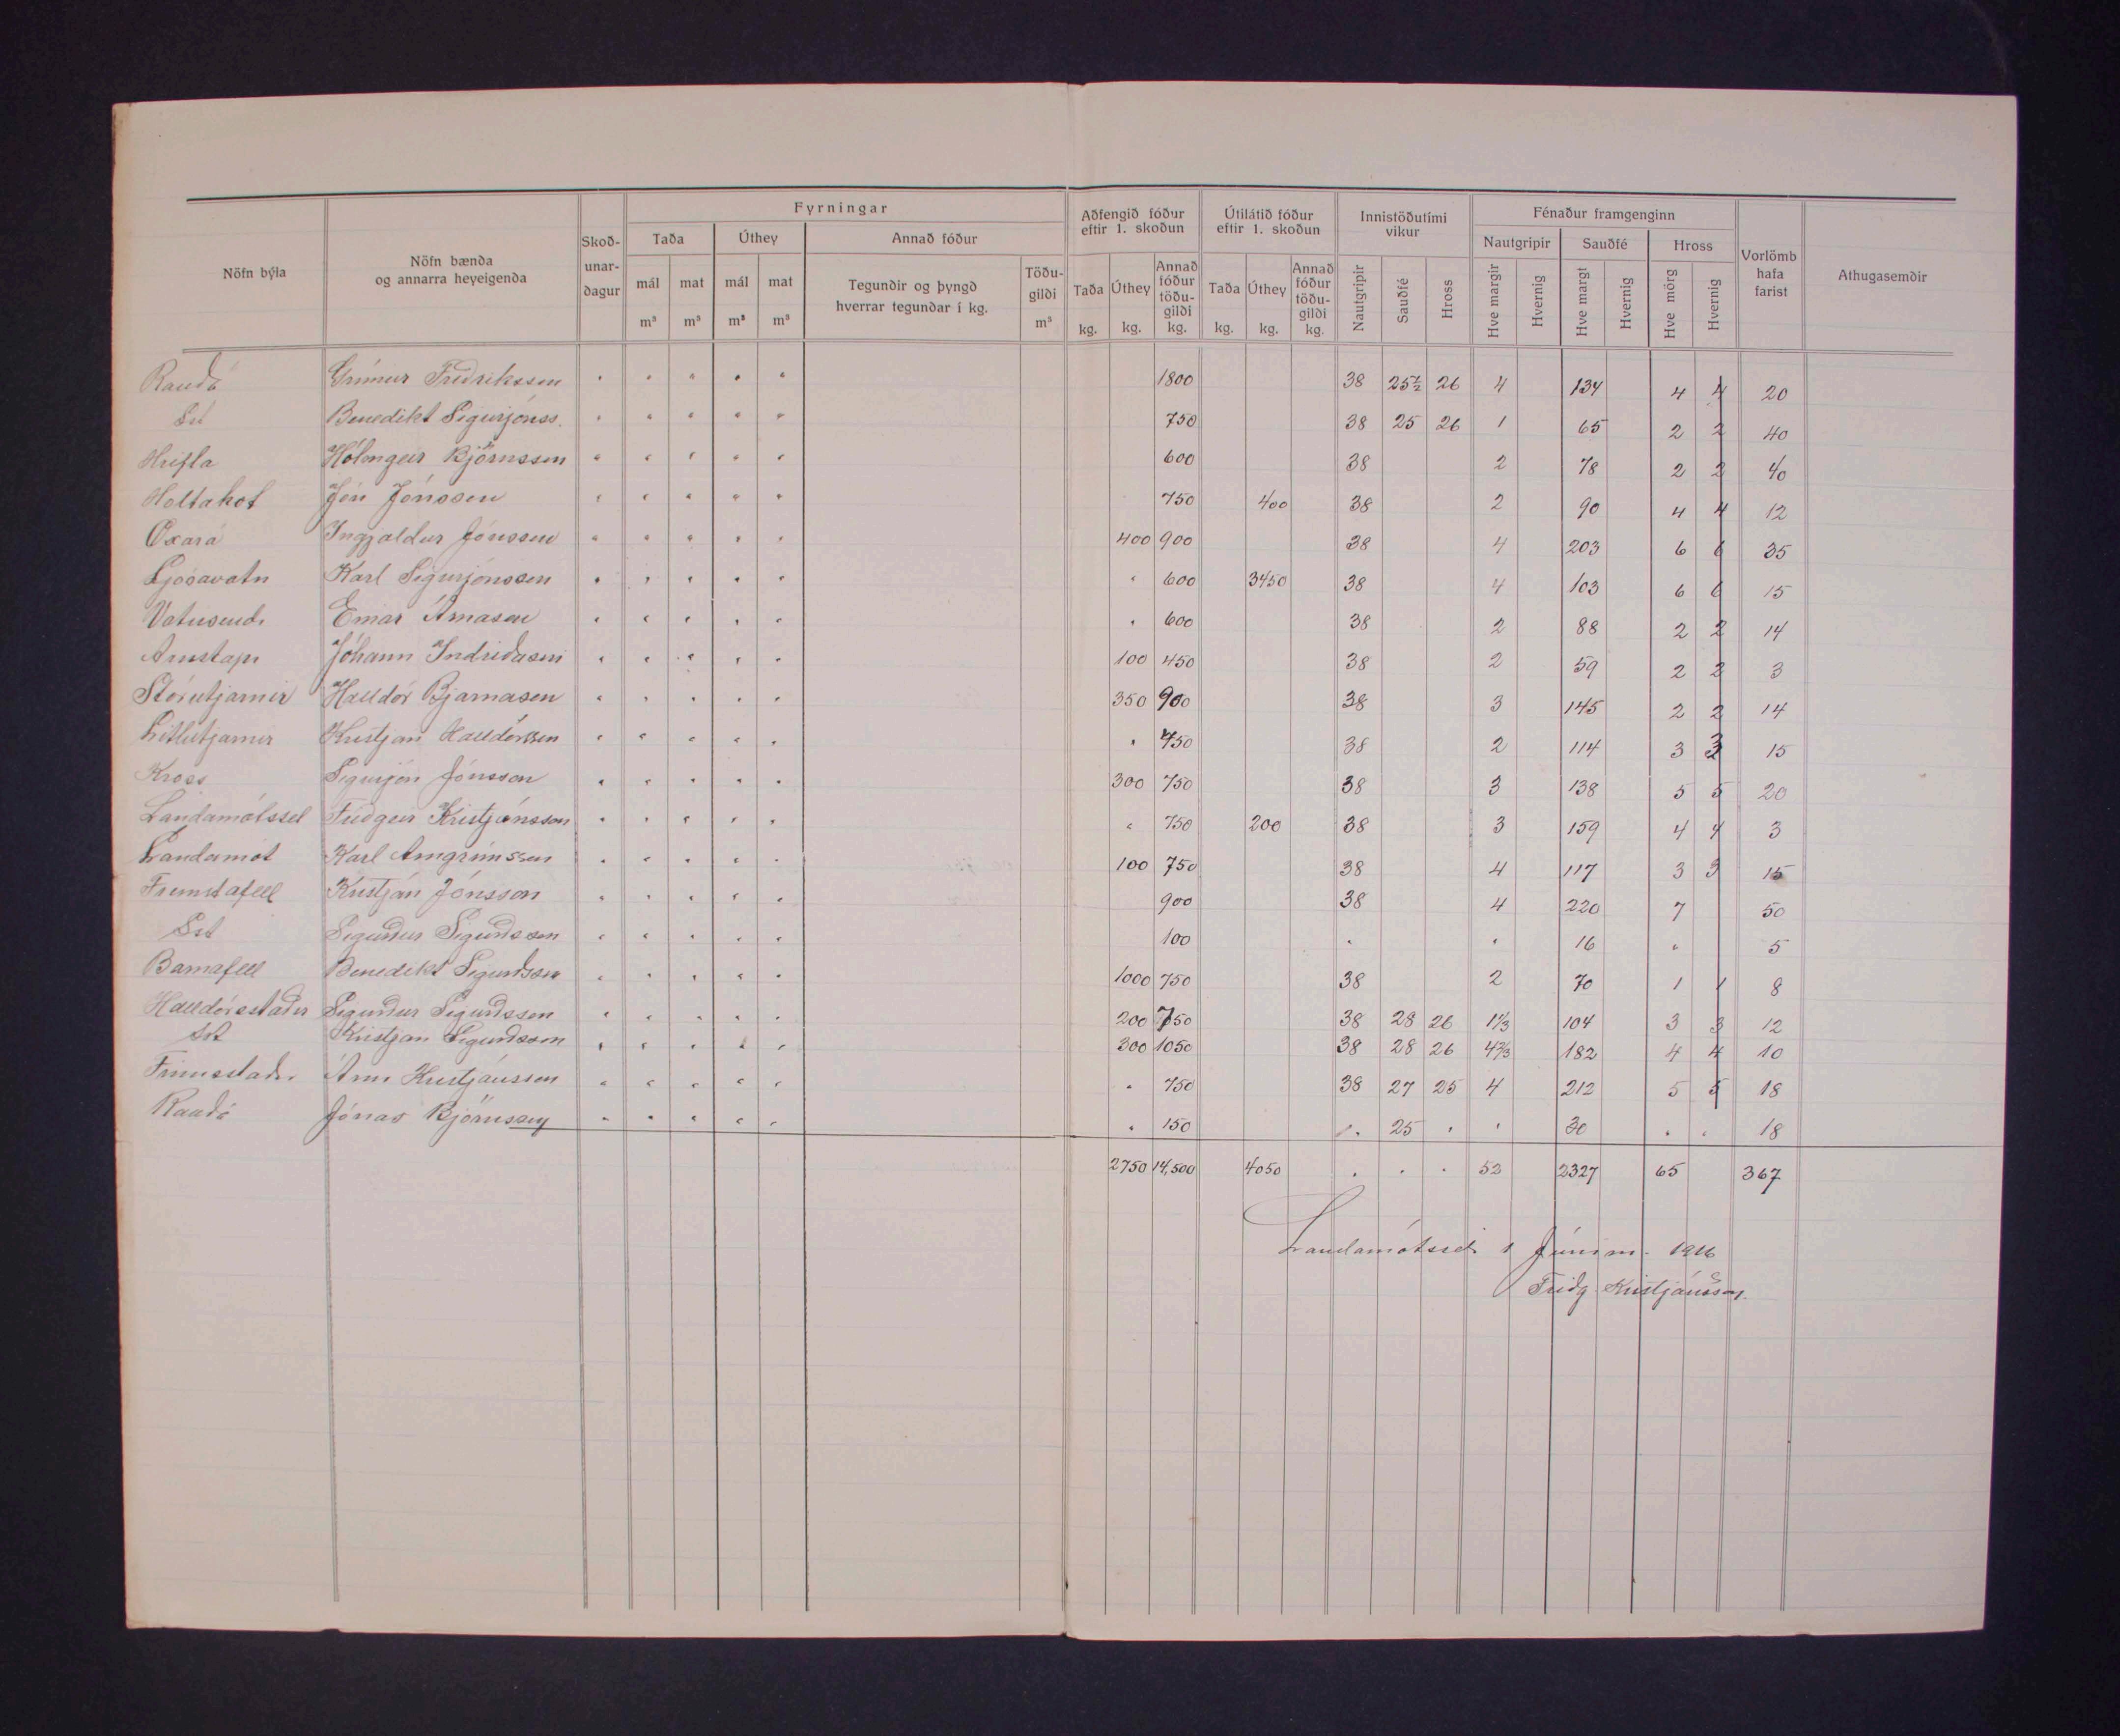 Fyrningar
Aðfengið fóður eftir 1. skoðun
Útilátið fóður eftir 1. skoðun
Innistöðutími vikur
Fénaður framgenginn
Nöfn býla
Nöfn bænda og annarra heyeigenda
Skoð-unar-dagur
Taða
Úthey
Annað fóður
Nautgripir
Sauðfé
Hross
Vorlömb hafa farist
Athugasemdir
mál m³
mat m³
mál m³
mat m³
Tegundir og þyngd hverrar tegundar í kg.
Töðu-gildi m³
Taða kg.
Úthey kg.
Annað fóður töðu-gildi kg.
Taða kg.
Úthey kg.
Annað fóður töðu-gildi kg.
Nautgripir
Sauðfé
Hross
Hve margir
Hvernig
Hve margt
Hvernig
Hve mörg
Hvernig
Rauðá Grímur Friðriksson " " " " " 1800 38 25½ 26 4 134 4 4 20
Sst Benedikt Sigurjónss. " " " " " 750 38 25 26 1 65 2 2 40
Hrifla Hólmgeir Björnsson " " " " " 600 38 2 78 2 2 40
Holtakot Jón Jónsson " " " " " 750 400 38 2 90 4 4 12
Oxará Ingjaldur Jónsson " " " " " 400 900 38 4 203 6 6 35
Ljósavatn Karl Sigurjónsson " " " " " " 600 3450 38 4 103 6 6 15
Vatnsendi Einar Árnason " " " " " " 600 38 2 88 2 2 14
Arnstapi Jóhann Indriðason " " " " " 100 450 38 2 59 2 2 3
Stórutjarnir Halldór Bjarnason " " " " " 350 900 38 3 145 2 2 14
Litlutjarnir Kristján Halldórsson " " " " " " 450 38 2 114 3 3 15
Kross Sigurjón Jónsson " " " " " 300 750 38 3 138 5 5 20
Landamótssel Friðgeir Kristjánsson " " " " " " 750 200 38 3 159 4 4 3
Landamot Karl Arngrímsson " " " " " 100 750 38 4 117 3 3 15
Fremstafell Kristján Jónsson " " " " " 900 38 4 220 7 50
Sst Sigurður Sigurðsson " " " " " 100 " " 16 " 5
Barnafell Benedikt Sigurðsson " " " " " 1000 750 38 2 70 1 1 8
Halldórsstaðir Sigurður Sigurðsson " " " " " 200 750 38 28 26 1⅓ 104 3 3 12
Sst Kristján Sigurðsson " " " " " 300 1050 38 28 26 4⅔ 182 4 4 10
Finnsstaðir Árni Kristjánsson " " " " " " 750 38 27 25 4 212 5 5 18
Rauðá Jónas Björnsson " " " " " " 150 " 25 " " 30 " " 18
2750 14,500 4050 " " " 52 2327 65 367
Landamótsseli 1 Júním. 1916
Friðg. Kristjánsson